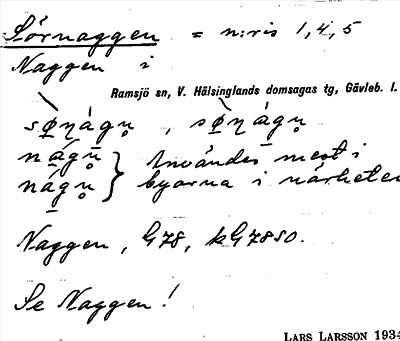 Sörnaggen = n:ris 1, 4, 5
Naggen i
Ramsjö sn, V. Hälsinglands domsagas tg, Gävleb. l.
Användes mest i
byarna i närheten
Naggen, G78, kG7850.
Se Naggen!
LARS LARSSON 1934